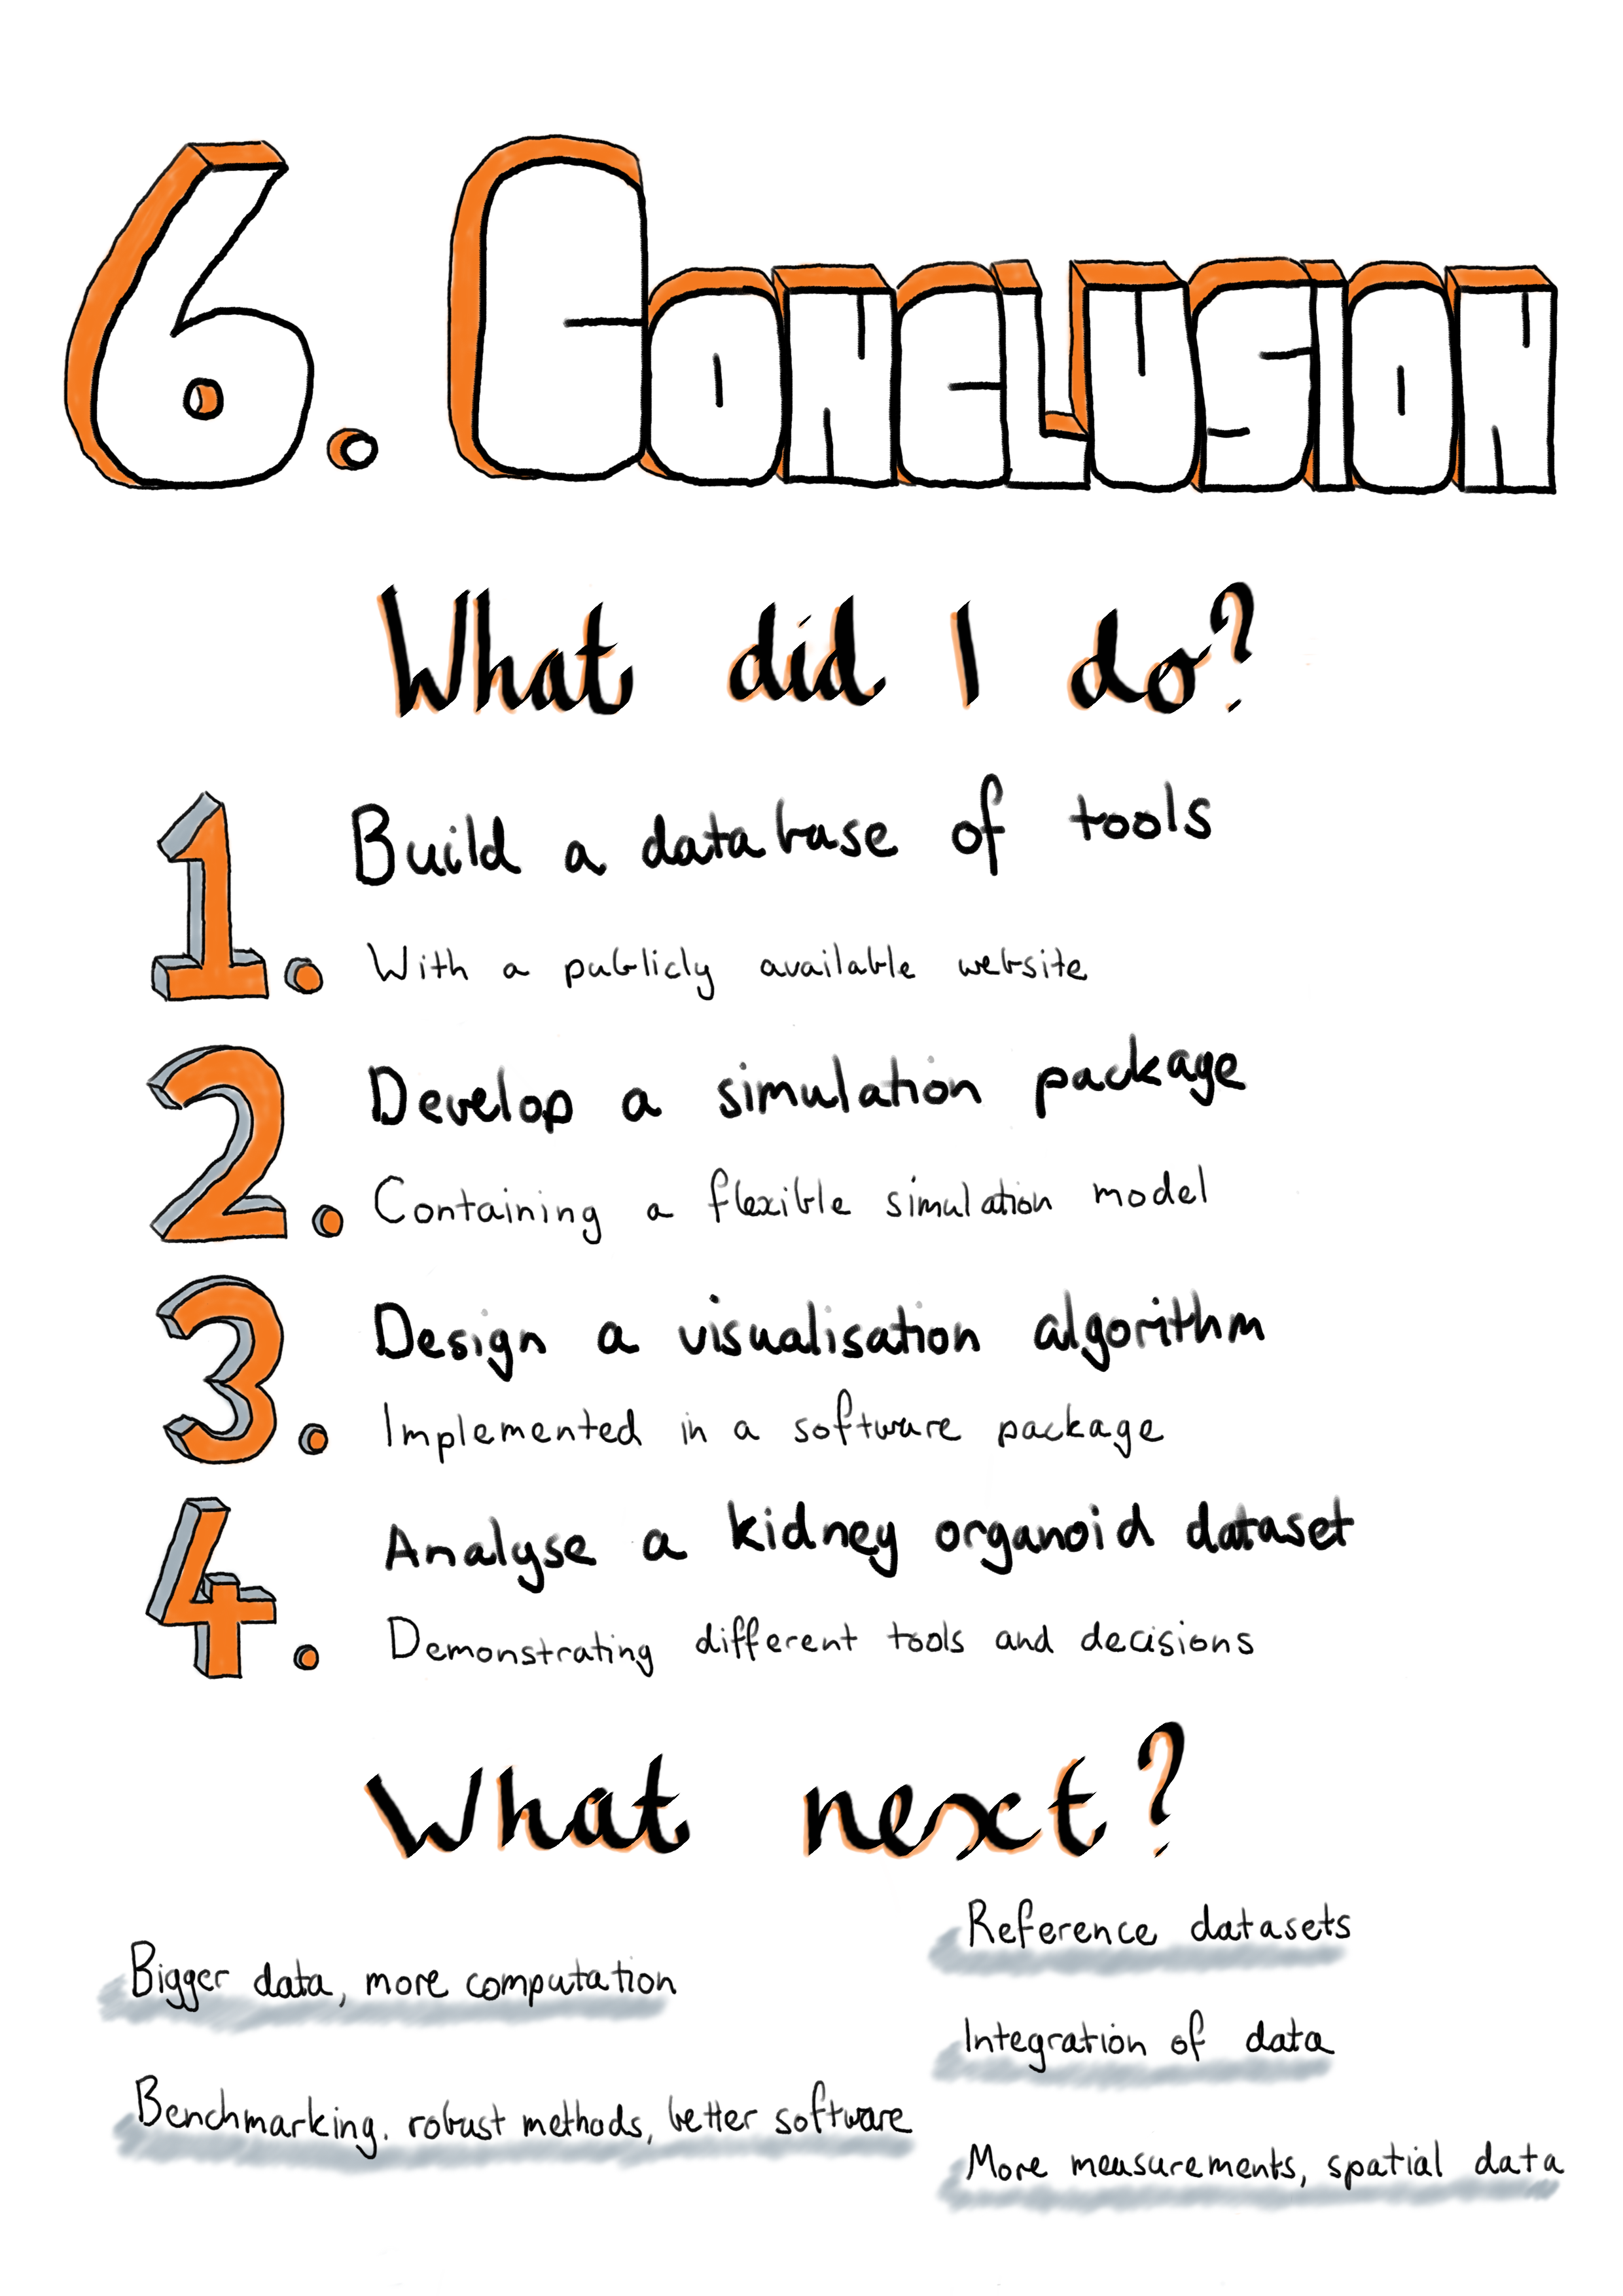 6. CONCLUSION
What did I do?
1. Build a database of tools
With a publicly available website
2. Develop a simulation package
Containing a flexible simulation model
3. Design a visualisation algorithm
Implemented in a software package
4. Analyse a kidney organoid dataset
Demonstrating different tools and decisions
What next?
Bigger data, more computation
Benchmarking. robust methods, better software
Reference datasets
Integration of data
More measurements, spatial data